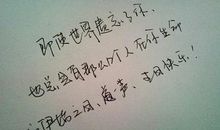 即使世界遗忘了你,
也总会有那么个人在你生命
之间,道一声,生日快乐!